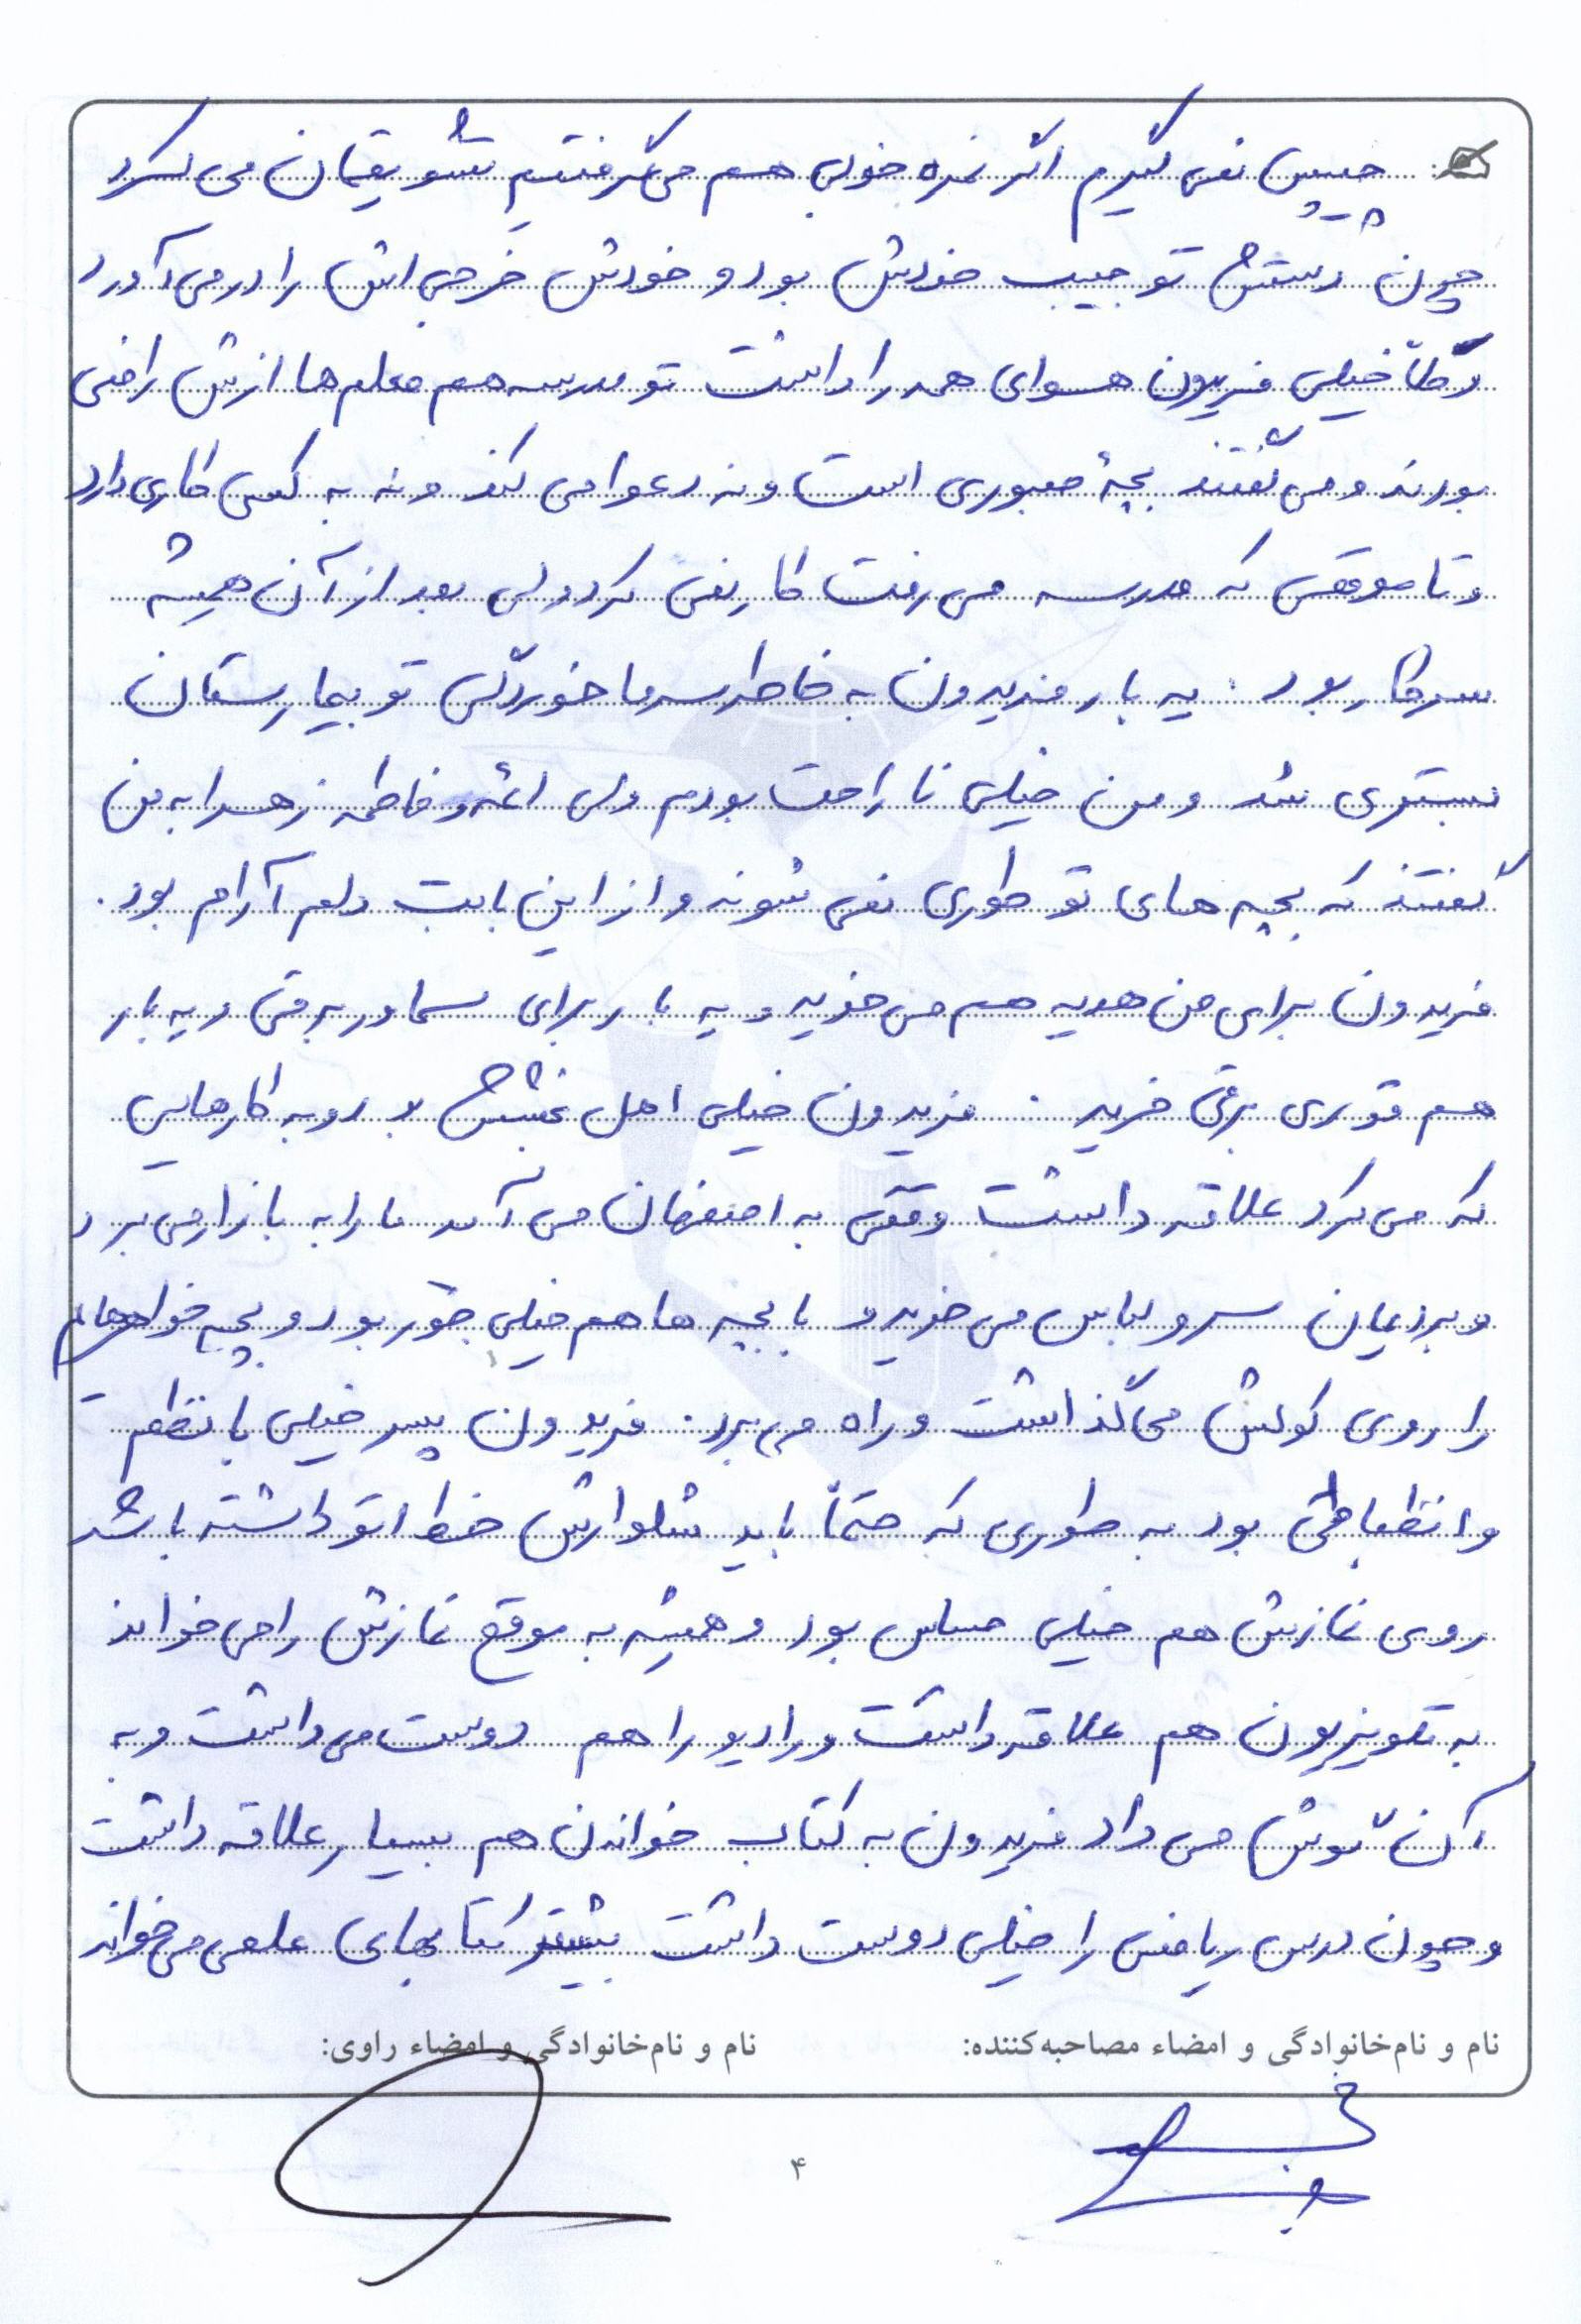 چیپس نمی گیرم اگر نمره خوبی هم می گرفتیم تشویقمان می کرد
چون دستش تو جیب خودش بود و خودش خرجی اش را در می آورد
و کلاً خیلی فریدون هوای همه را داشت تو مدرسه هم معلم ها ازش راضی
بودند و می گفتند بچهٔ صبوری است و نه دعوا می کند و نه به کسی کاری دارد
و تا موقعی که مدرسه می رفت کار نمی کرد ولی بعد از آن همیشه
سر کار بود . یه بار فریدون به خاطر سرما خوردگی تو بیمارستان
بستری شد و من خیلی ناراحت بودم ولی ائمه و فاطمه زهرا به من
گفتند که بچه های تو طوری نمی شونه و از این بابت دلم آرام بود .
فریدون برای من هدیه هم می خرید و یه بار برای سماور برقی و یه بار
هم قوری برقی خرید . فریدون خیلی اهل بخشش بود و به کارهایی
که می کرد علاقه داشت وقتی به اصفهان می آمد ما را به بازار می برد
و برایمان سر و لباس می خرید و با بچه ها هم خیلی جور بود و بچه خواهرهایم
را روی کولش می گذاشت و راه می برد . فریدون پسر خیلی با نظم
و انظباطی بود به طوری که حتماً باید شلوارش خط اتو داشته باشد
روی نمازش هم خیلی حساس بود و همیشه به موقع نمازش را می خواند
به تلویزیون هم علاقه داشت و رادیو را هم دوست می داشت و به
آن گوش می داد فریدون به کتاب خواندن هم بسیار علاقه داشت
و چون درس ریاضی را خیلی دوست داشت بیشتر کتابهای علمی می خواند
نام و نام‌خانوادگی و امضاء مصاحبه‌کننده: نام و نام‌خانوادگی و امضاء راوی:
۴